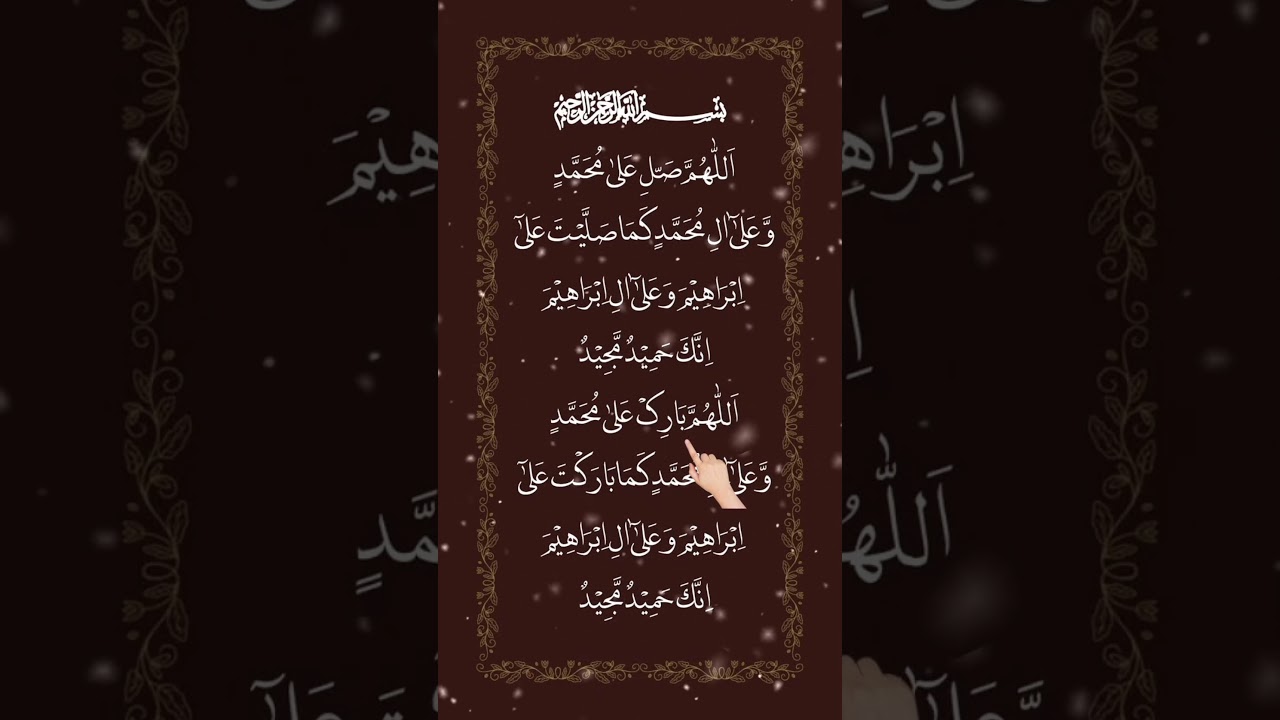 بسم الله الرحمن الرحيم
اَللّٰهُمَّ صَلِّ عَلٰى مُحَمَّدٍ
وَّعَلٰٓى اٰلِ مُحَمَّدٍ كَمَا صَلَّيْتَ عَلٰٓى
اِبْرَاهِيْمَ وَعَلٰٓى اٰلِ اِبْرَاهِيْمَ
اِنَّكَ حَمِيْدٌ مَّجِيْدٌ
اَللّٰهُمَّ بَارِكْ عَلٰى مُحَمَّدٍ
وَّعَلٰٓى مُحَمَّدٍ كَمَا بَارَكْتَ عَلٰٓى
اِبْرَاهِيْمَ وَعَلٰٓى اٰلِ اِبْرَاهِيْمَ
اِنَّكَ حَمِيْدٌ مَّجِيْدٌ